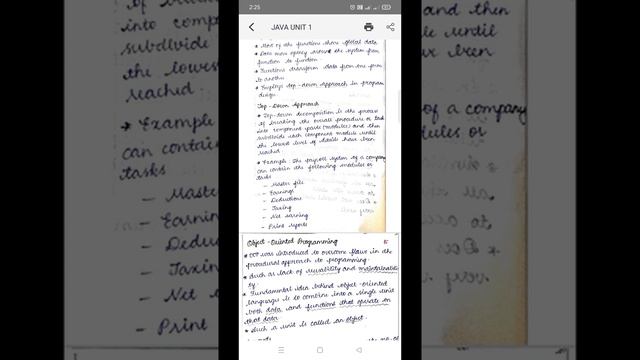 2:25
JAVA UNIT 1
* Most of the functions share global data
* Data move openly around the system from
function to function
* Functions transform data from one form
to another
* Employs top-down approach in program
design.
Top-Down Approach
* Top-down decomposition is the process
of breaking the overall procedure or task
into component parts (modules) and then
subdivide each component module until
the lowest level of details have been
reached
* Example: The payroll system of a company
can contain the following modules or
tasks
- Master file
- Earnings
- Deductions
- Taxing
- Net earning
- Print reports
Object-Oriented Programming
* OOP was introduced to overcome flaws in the
procedural approach to programming.
* Such as lack of reusability and maintainabili
ty.
* Fundamental idea behind object-oriented
languages is to combine into a single unit
both data and functions that operate on
that data.
* Such a unit is called an object.
into compo
subdivide
the lowes
reached
* Example
can contain
tasks
- Master
- Earning
- Deduc
- Taxin
- Net
- Print
and then
until
been
of a company
modules or